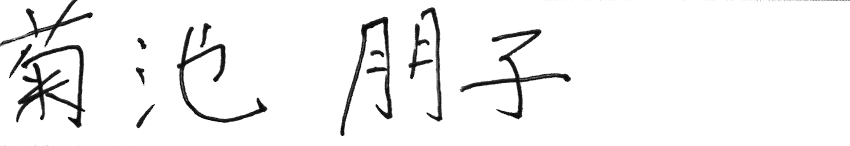 菊池 朋子